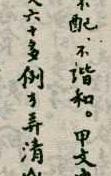 不配、不谐和。甲文
六十多例弄清